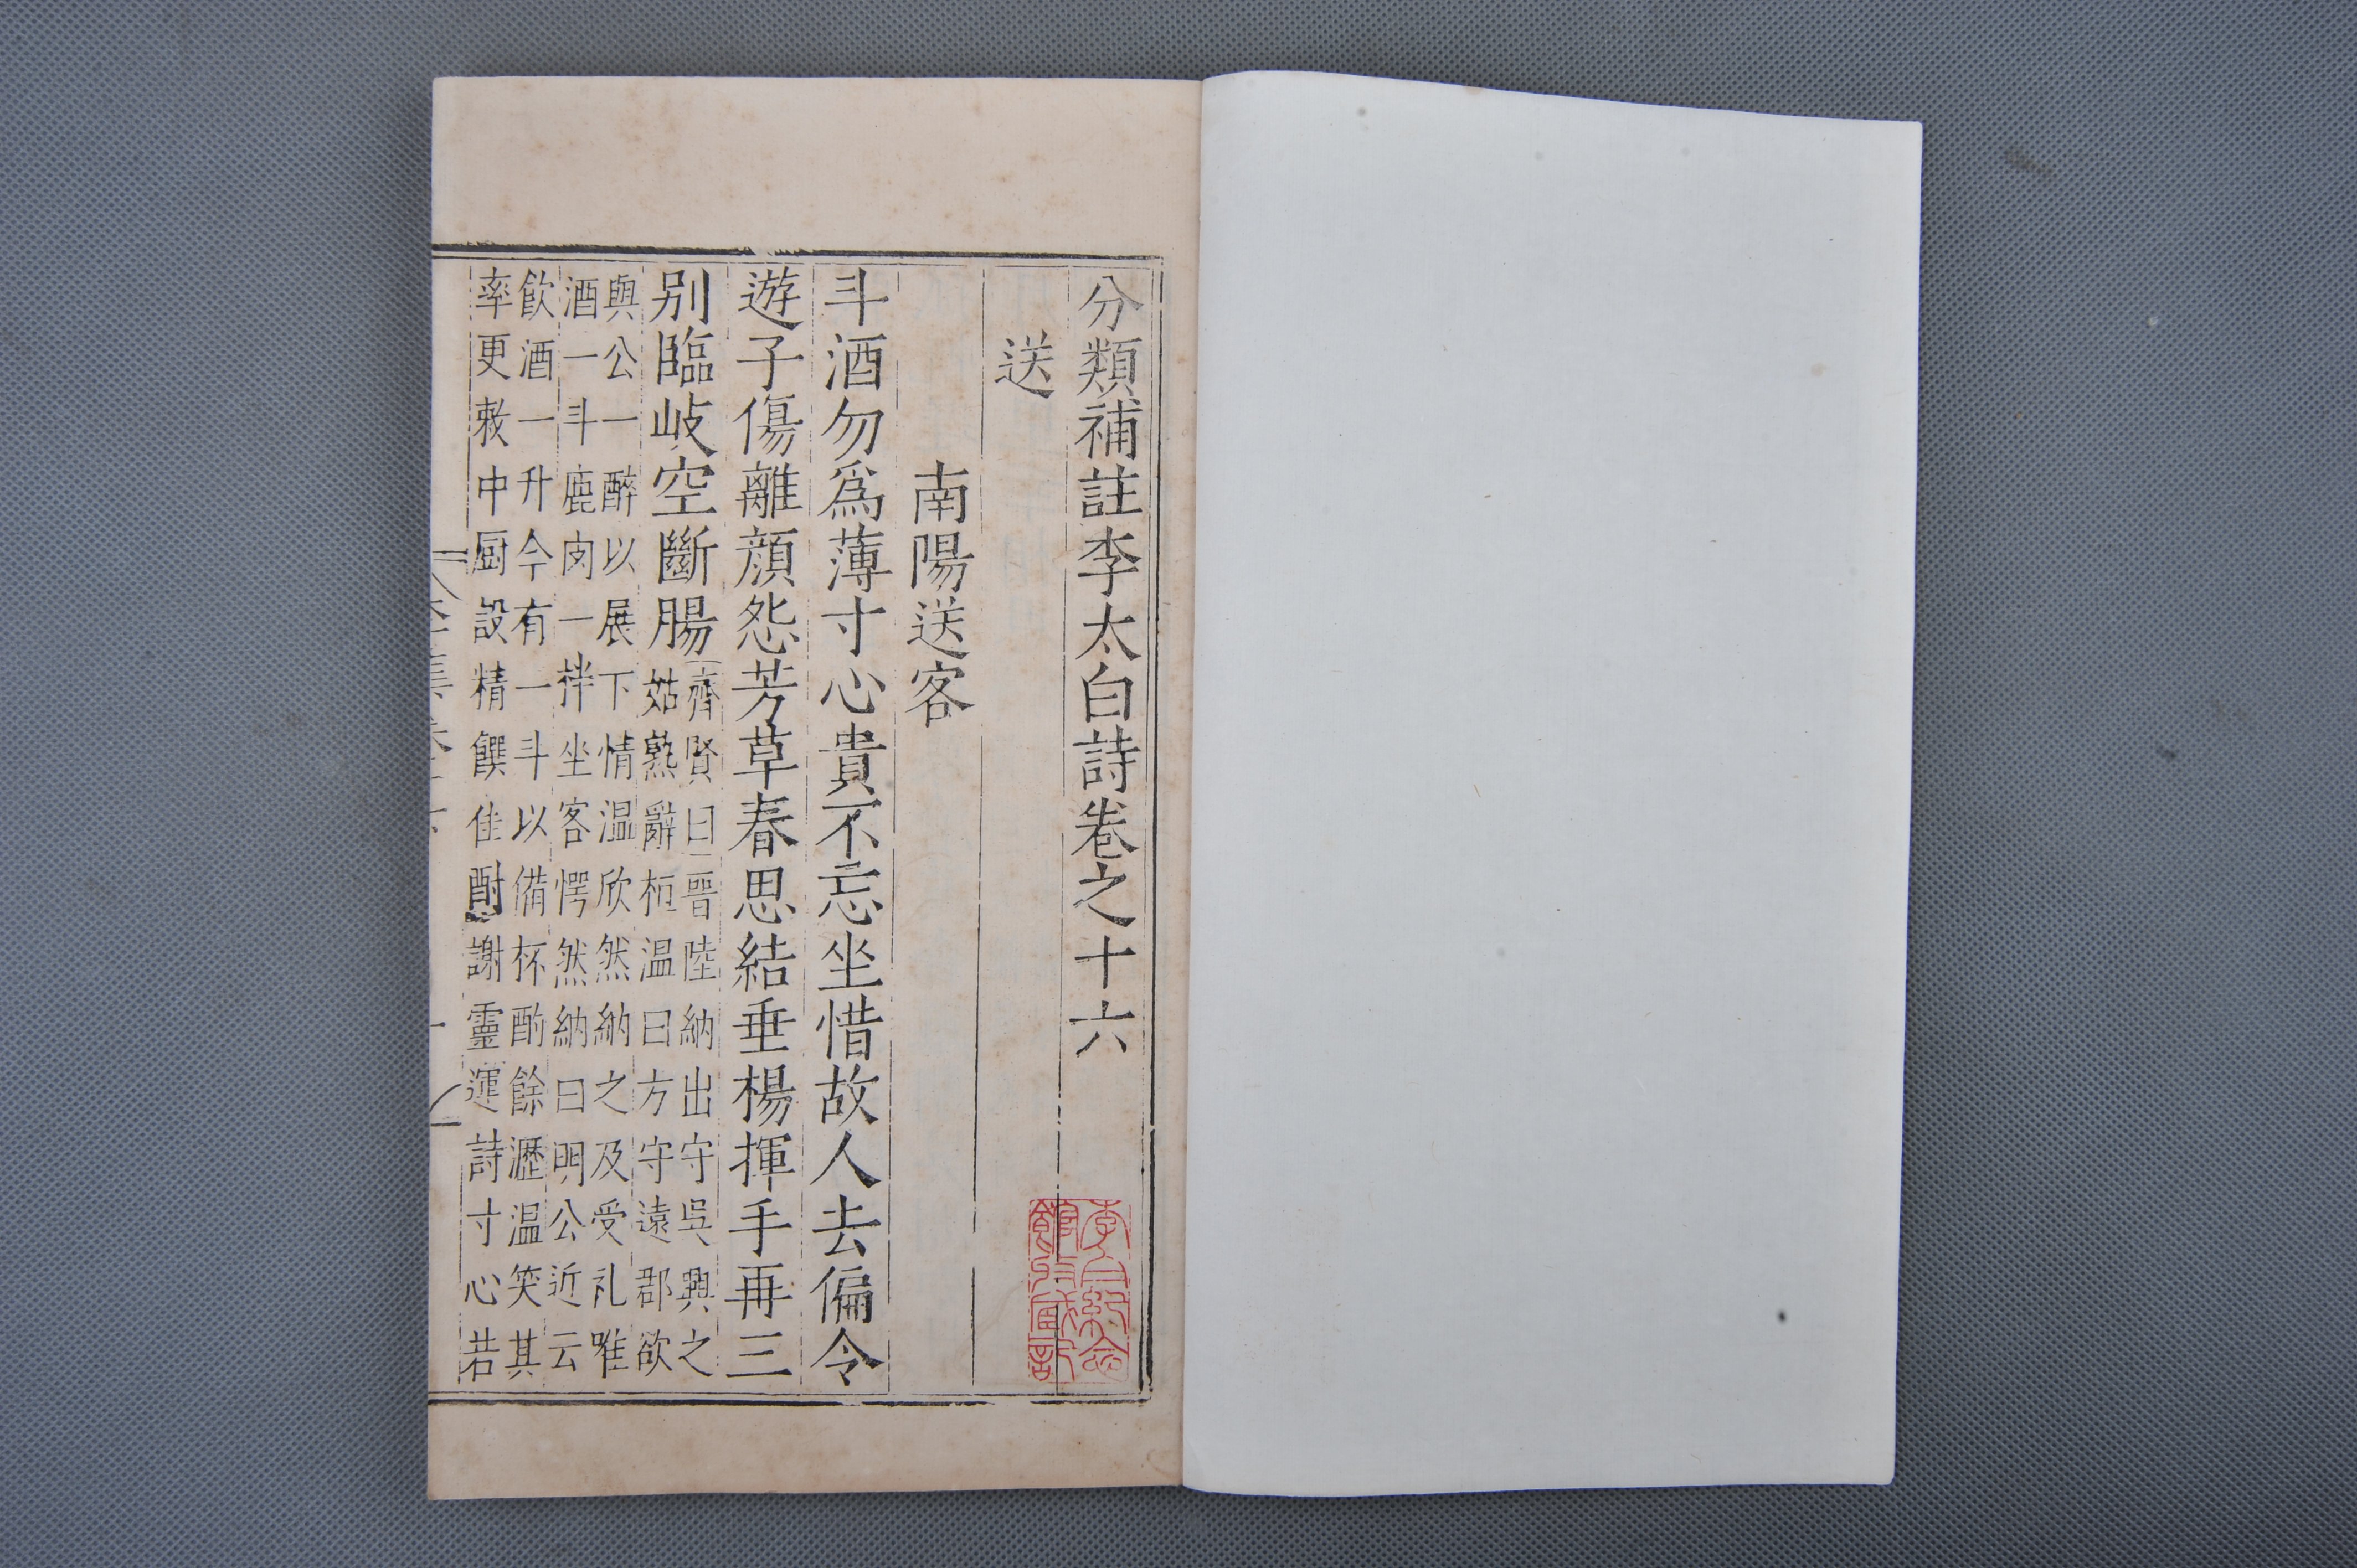 分類補註李太白詩卷之十六
送
南陽送客
斗酒勿爲薄寸心貴不忘坐惜故人去偏令
遊子傷離顏怨芳草春思結垂楊揮手再三
别臨岐空斷腸
齊賢曰晋陸納出守吳興之
姑熟辭桓温曰方守遠郡欲
與公一醉以展下情温欣然納之及受礼唯
酒一斗鹿肉一柈坐客愕然納曰明公近云
飲酒一升今有一斗以備杯酌餘瀝温笑其
率更敕中厨設精饌佳酎謝靈運詩寸心若
李白紀念
館収藏記